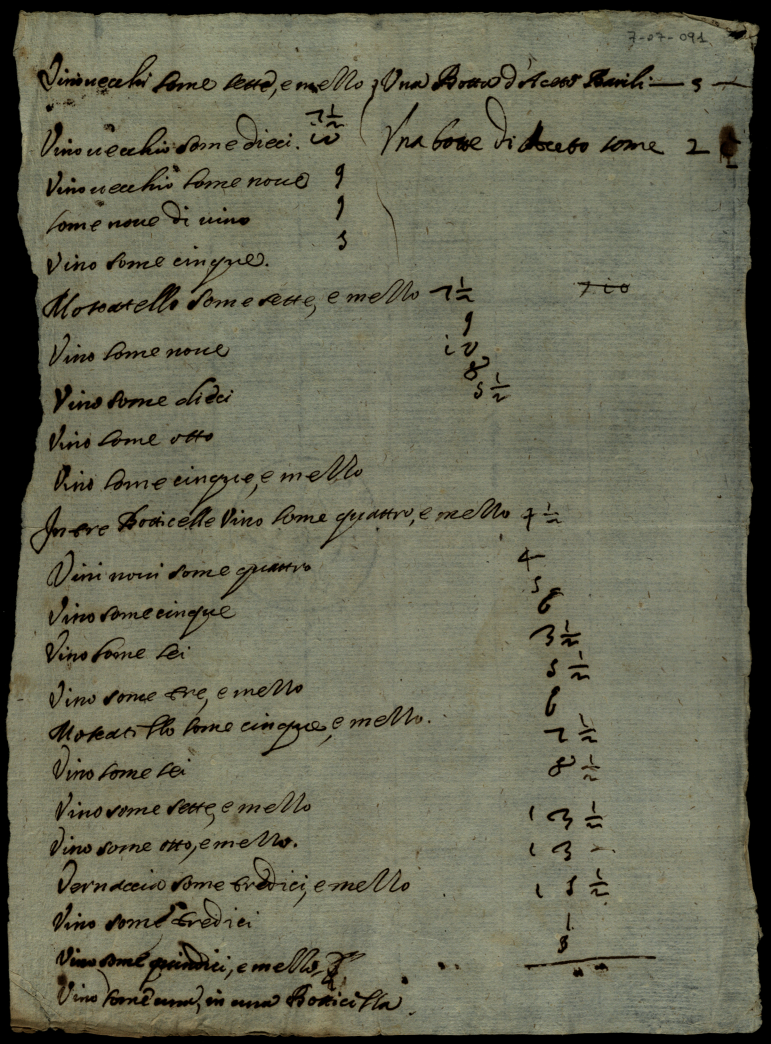 7-07-091
Vino uecchi some sette, e mezzo 7 1/2
Una Botte d'Aceto Barili — 5 —
Vino uecchio some dieci. 10
Una botte di Aceto some 2 1/2
Vino uecchio some noue 9
some noue di uino 9
Vino some cinque. 5
Moscatello some sette, e mezzo 7 1/2
Vino some noue 9
Vino some dieci 10
Vino some otto 8
Vino some cinque, e mezzo 5 1/2
In tre Botticelle Vino some quattro, e mezzo 4 1/2
Vini noui some quattro 4
Vino some cinque 5
Vino some sei 6
Vino some tre, e mezzo 3 1/2
Moscatello some cinque, e mezzo. 5 1/2
Vino some sei 6
Vino some sette, e mezzo 7 1/2
Vino some otto, e mezzo. 8 1/2
Vernaccia some tredici, e mezzo 13 1/2
Vino some tredici 13 —
Vino some quindici, e mezzo 15 1/2
Vino some una, in una Botticella 1